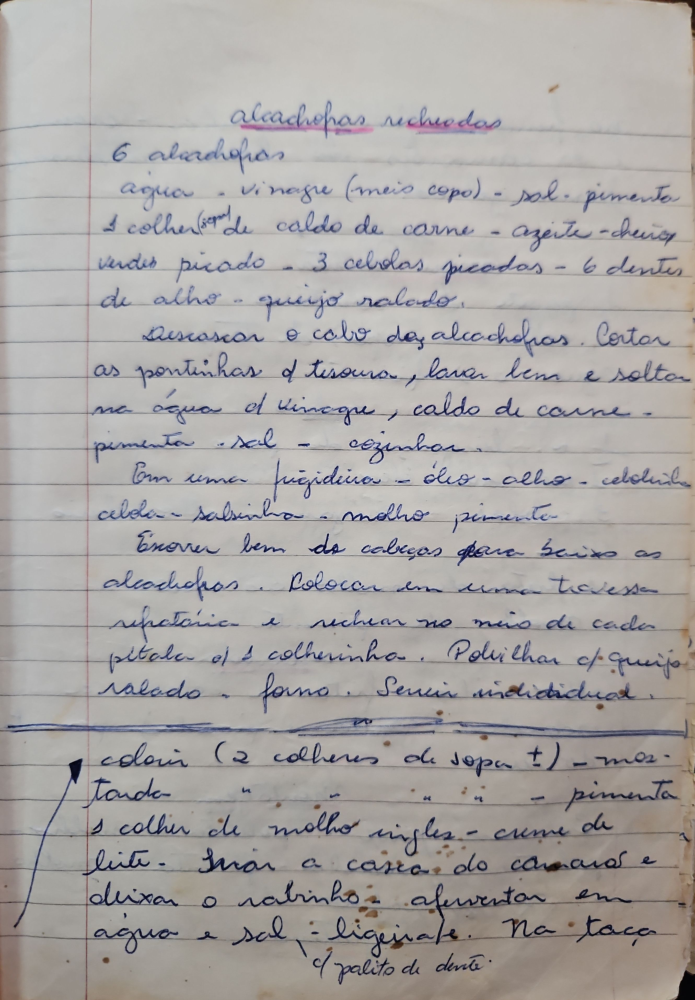 alcachofras recheadas
6 alcachofras
água - vinagre (meio copo) - sal - pimenta
1 colher (sopa) de caldo de carne - azeite - cheiro
verdes picado - 3 cebolas picadas - 6 dentes
de alho - queijo ralado.
Descascar o cabo das alcachofras. Cortar
as pontinhas c/ tesoura, lavar bem e soltar
na água c/ vinagre, caldo de carne -
pimenta - sal - cozinhar.
Em uma frigideira - óleo - alho - cebolinha
cebola - salsinha - molho pimenta
Escorrer bem de cabeças para baixo as
alcachofras. Colocar em uma travessa
refratária e rechear no meio de cada
pétala c/ 1 colherinha. Polvilhar c/ queijo
ralado - forno. Servir individual.
colorir (2 colheres de sopa ±) - mos-
tarda " " " " - pimenta
1 colher de molho ingles - creme de
leite - Tirar a casca do camarão e
deixar o rabinho - aferventar em
água e sal, - ligeira/e. Na taça
c/ palito de dente.